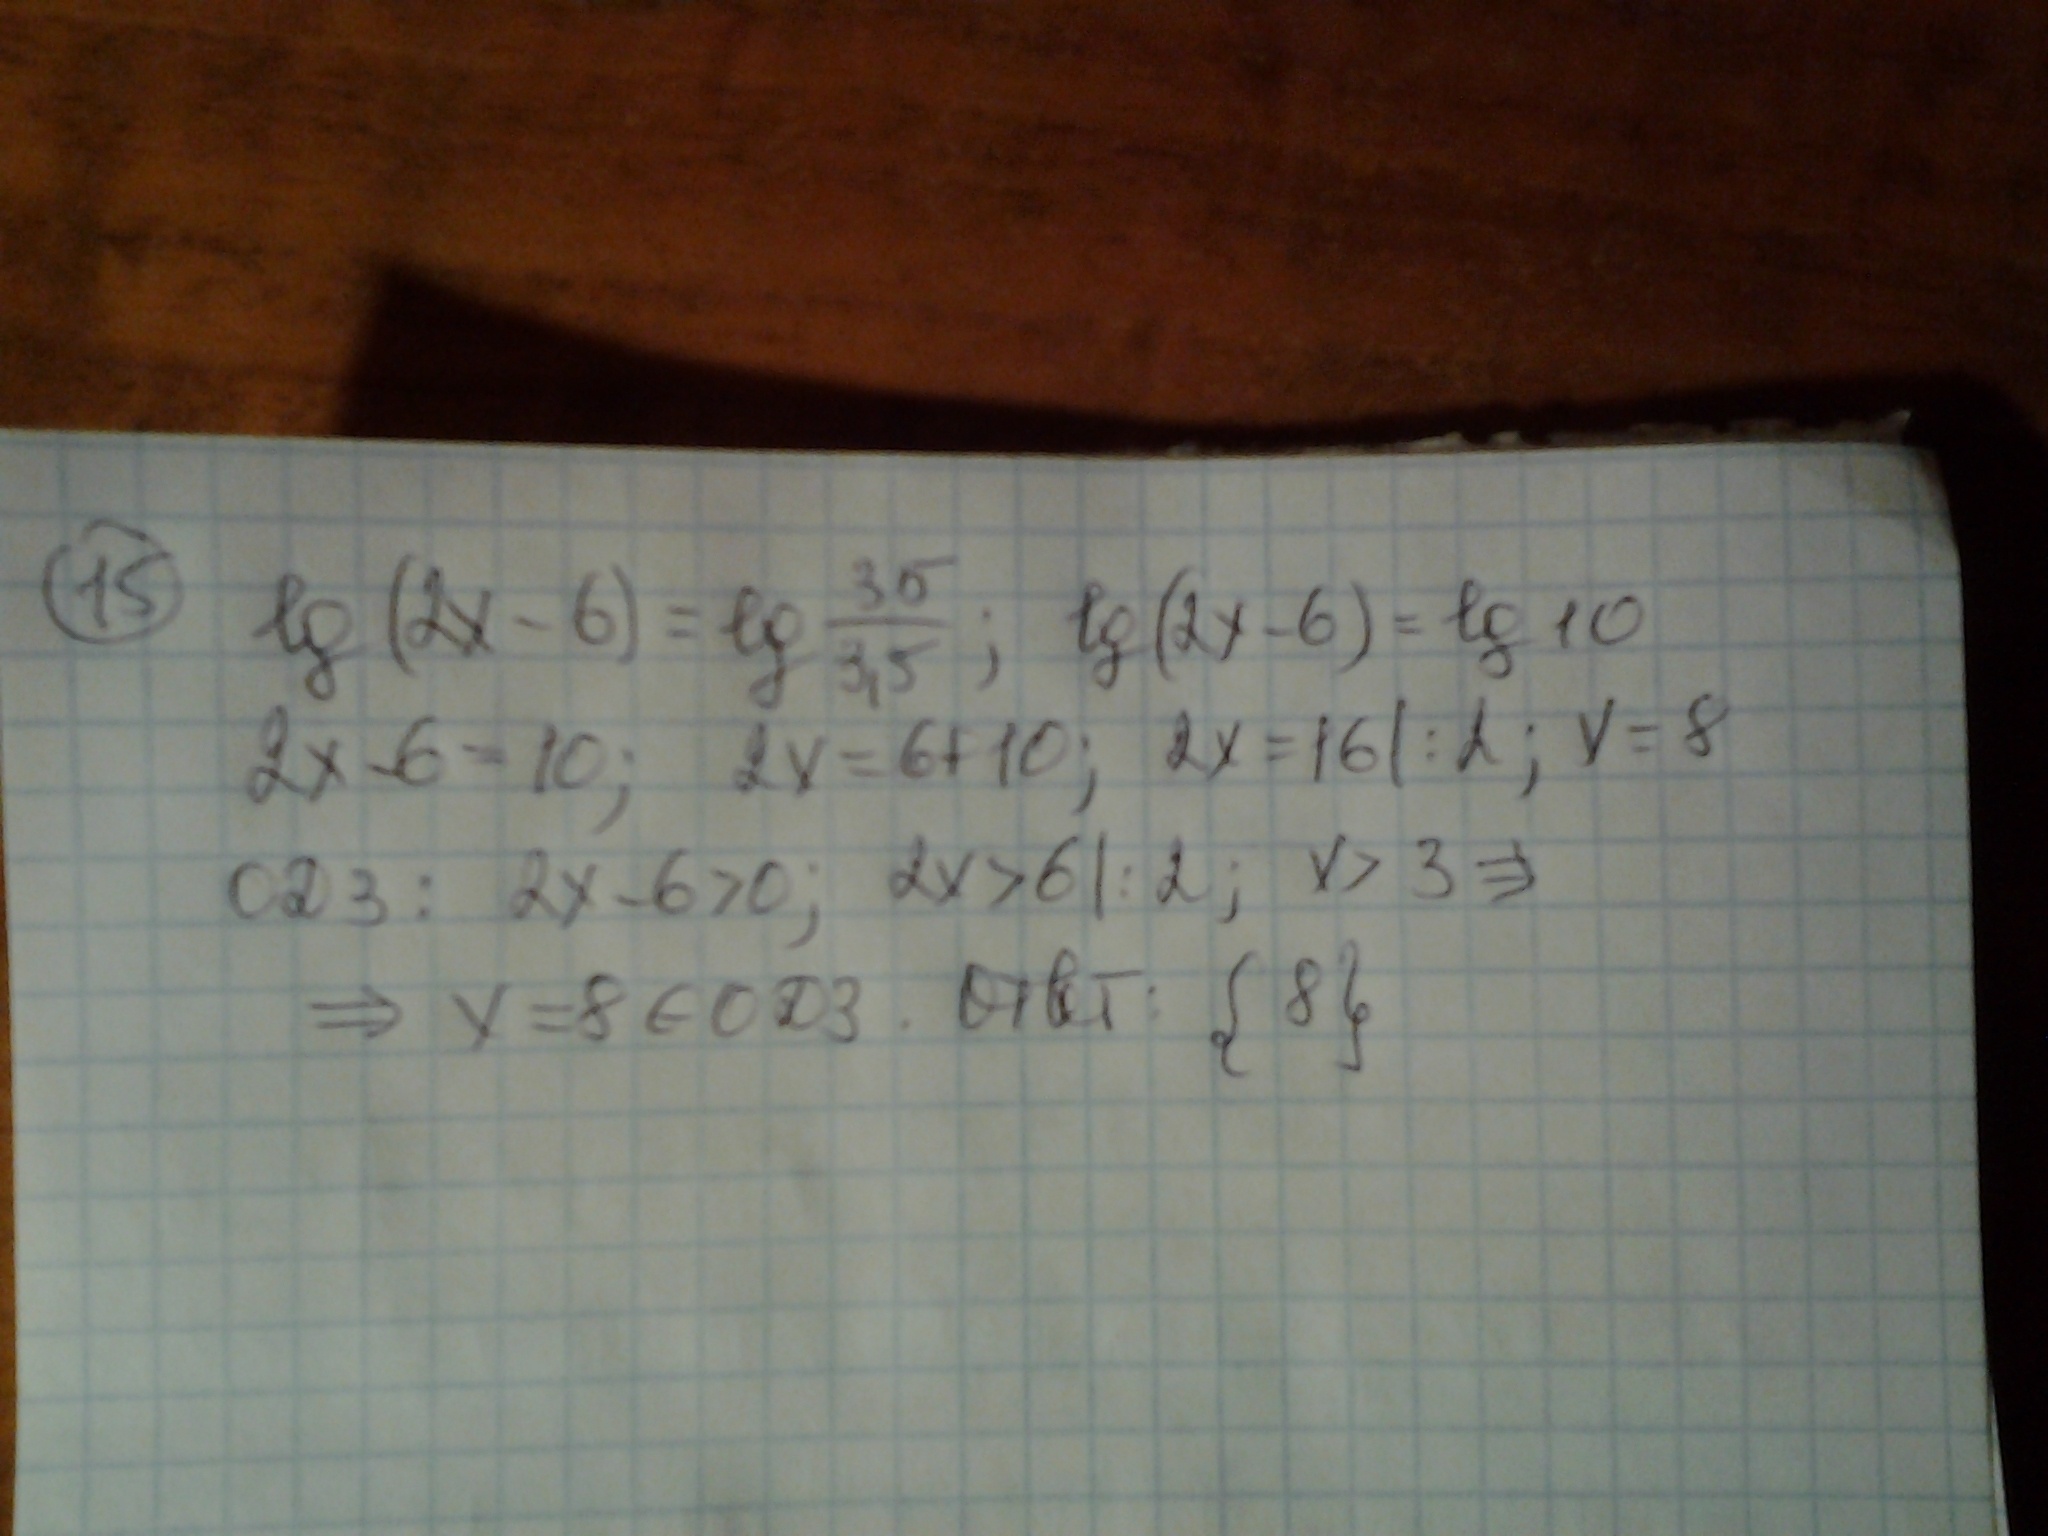 15 lg (2x - 6) = lg 35/3,5; lg (2x - 6) = lg 10
2x - 6 = 10; 2x = 6 + 10; 2x = 16 |: 2; x = 8
ОДЗ: 2x - 6 > 0; 2x > 6 |: 2; x > 3 ⇒
⇒ x = 8 ∈ ОДЗ. Ответ: {8}